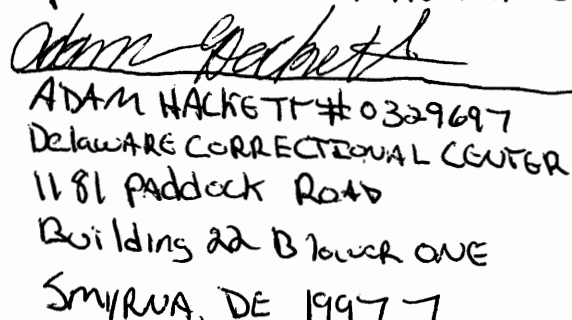 Adam Hackett
ADAM HACKETT #0329697
DELAWARE CORRECTIONAL CENTER
1181 PADDOCK ROAD
Building 22 B lower ONE
SMYRNA, DE 19977